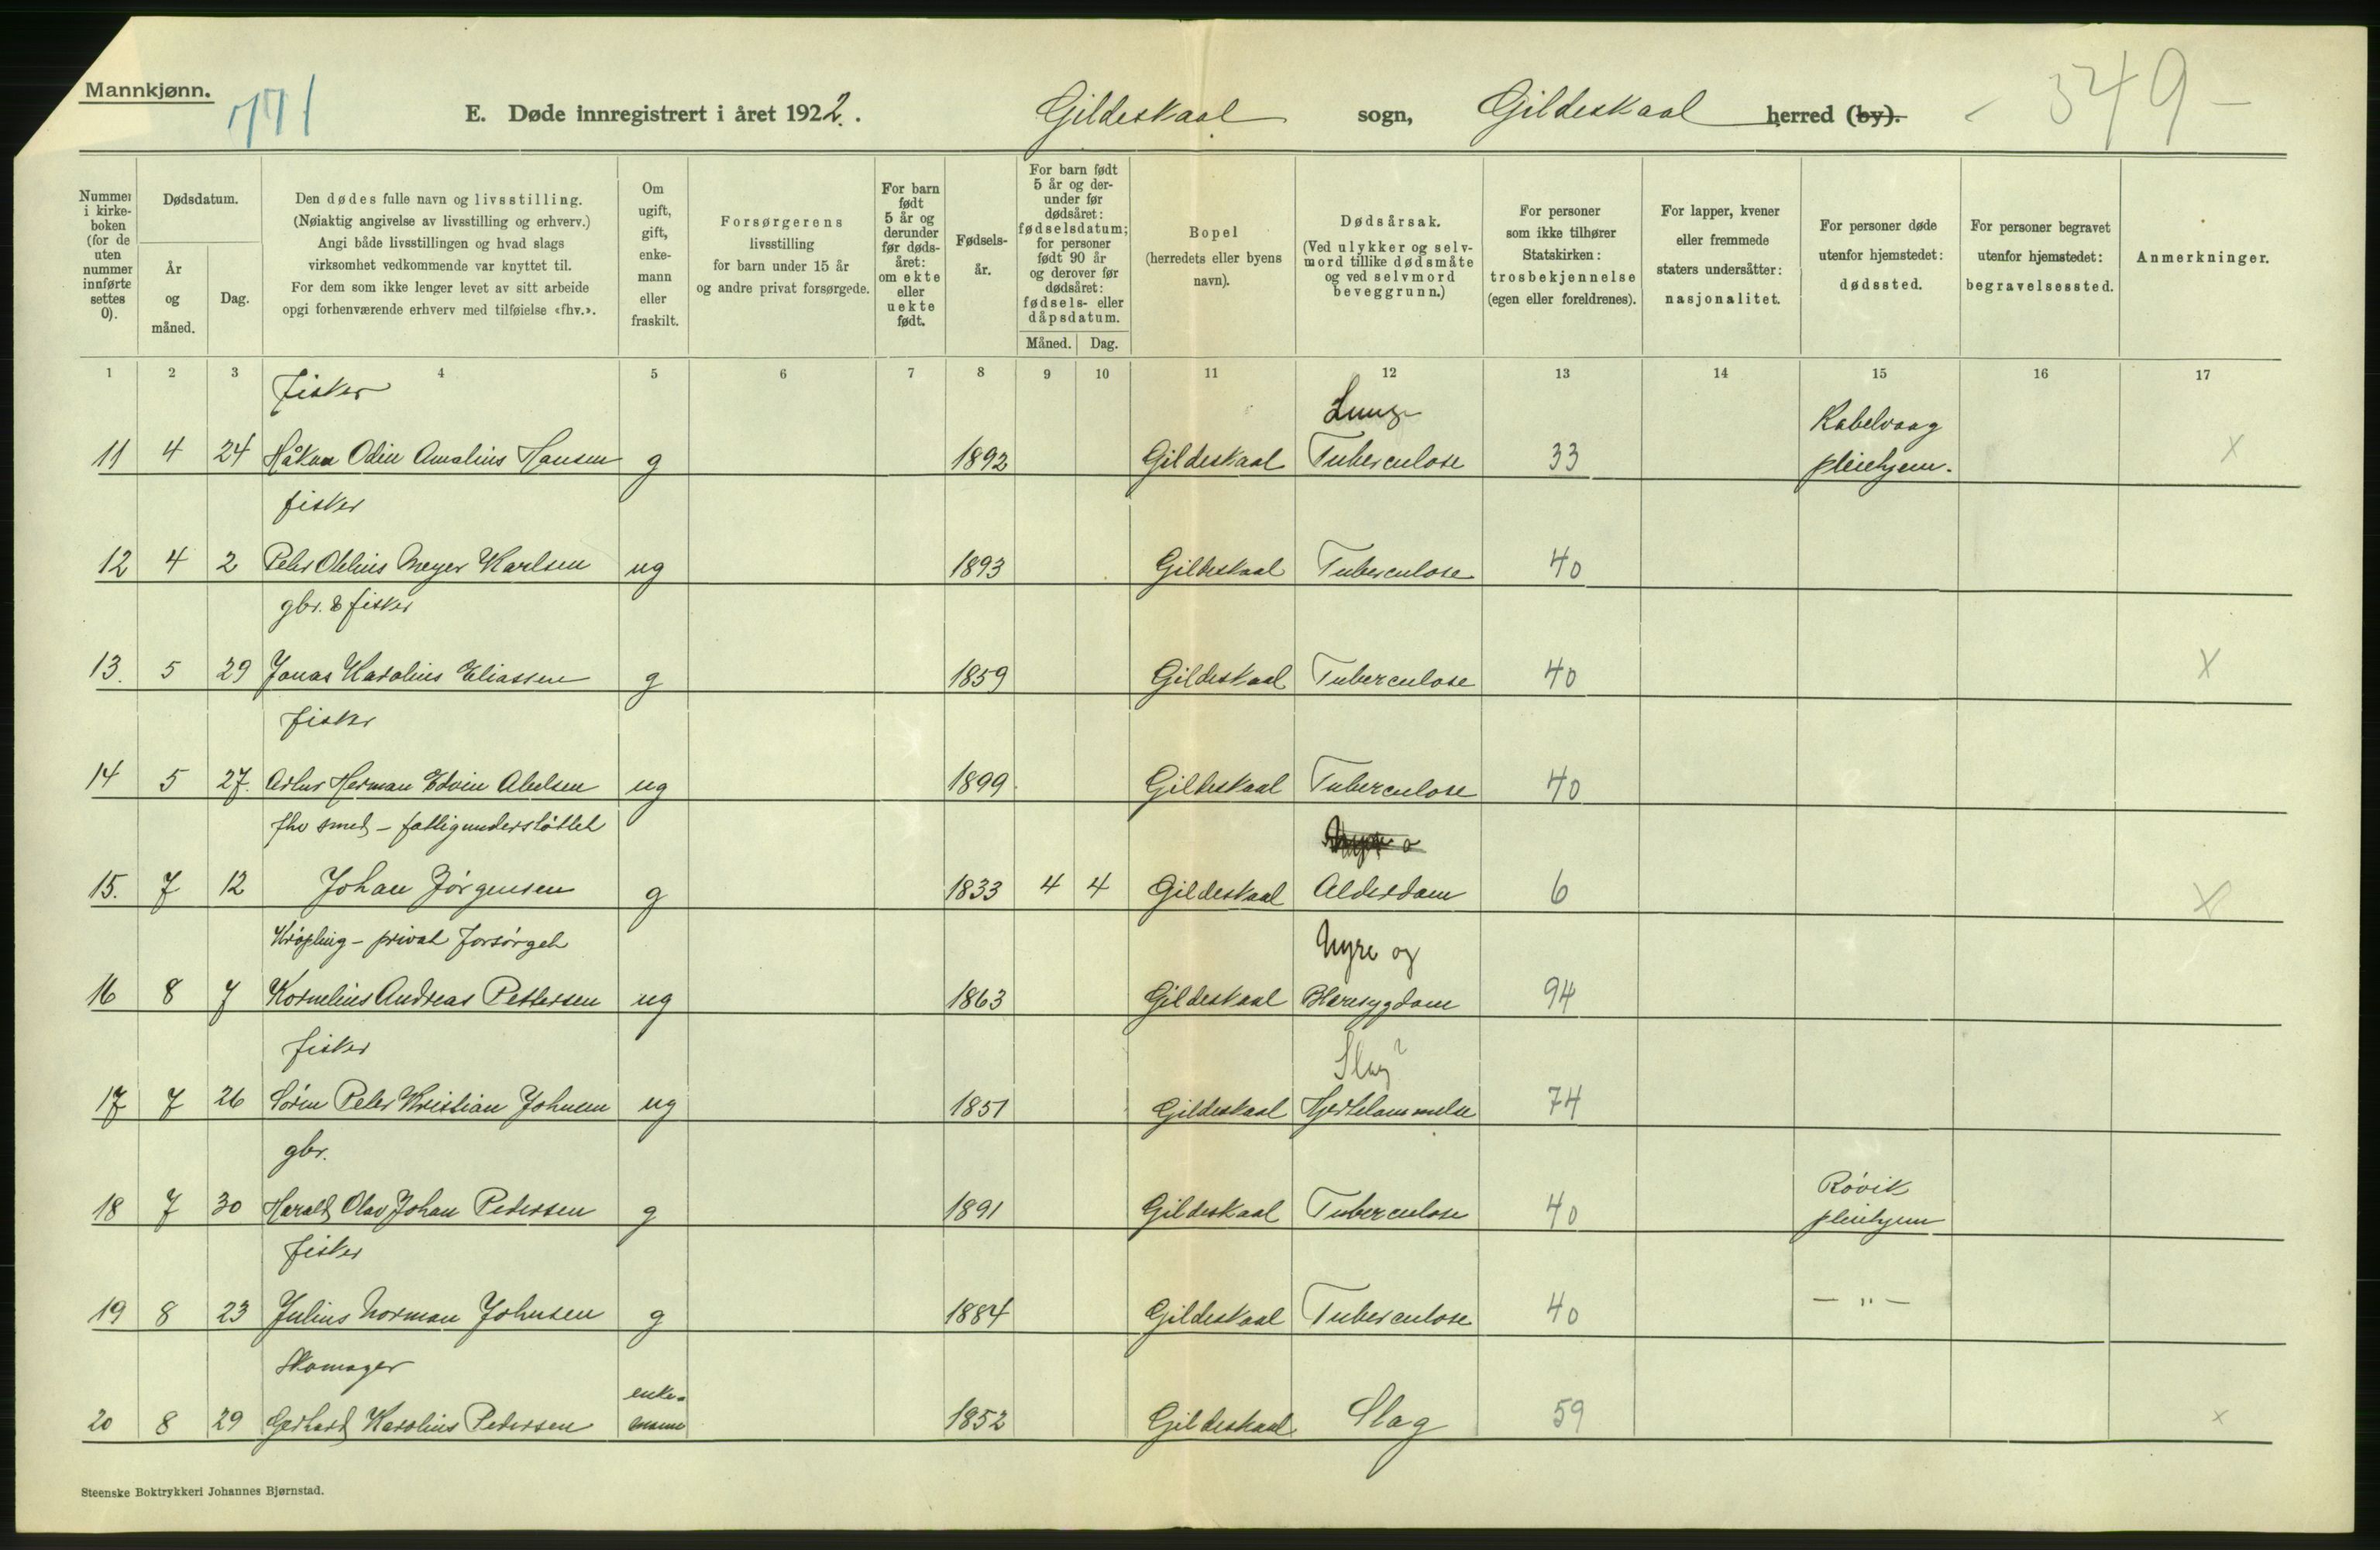 Mannkjønn.
771
E. Døde innregistrert i året 1922.
Gildeskaal sogn, Gildeskaal herred (by).
- 349 -
Nummer i kirke-boken (for de uten nummer innførte settes 0).
Dødsdatum.
År og måned.
Dag.
Den dødes fulle navn og livsstilling.
(Nøiaktig angivelse av livsstilling og erhverv.)
Angi både livsstillingen og hvad slags
virksomhet vedkommende var knyttet til.
For dem som ikke lenger levet av sitt arbeide
opgi forhenværende erhverv med tilføielse «fhv.».
Om ugift, gift, enke-mann eller fraskilt.
Forsørgerens
livsstilling
for barn under 15 år
og andre privat forsørgede.
For barn født 5 år og derunder før døds-året: om ekte eller uekte født.
Fødsels-år.
For barn født 5 år og der-under før dødsåret: fødselsdatum; for personer født 90 år og derover før dødsåret: fødsels- eller dåpsdatum.
Måned. Dag.
Bopel
(herredets eller byens
navn).
Dødsårsak.
(Ved ulykker og selv-
mord tillike dødsmåte
og ved selvmord
beveggrunn.)
For personer
som ikke tilhører
Statskirken:
trosbekjennelse
(egen eller foreldrenes).
For lapper, kvener
eller fremmede
staters undersåtter:
nasjonalitet.
For personer døde
utenfor hjemstedet:
dødssted.
For personer begravet
utenfor hjemstedet:
begravelsessted.
Anmerkninger.
1 2 3 4 5 6 7 8 9 10 11 12 13 14 15 16 17
fisker Lunge Kabelvaag
11 4 24 Håkon Odin Amalius Hansen g 1892 Gildeskaal Tuberculose 33 pleiehjem. X
fisker
12 4 2 Peter Meyer Karlsen ug 1893 Gildeskaal Tuberculose 40
gbr. & fisker
13. 5 29 Jonas Karolius Eliassen g 1859 Gildeskaal Tuberculose 40 X
fisker
14 5 27. Herman Edvin Abelsen ug 1899 Gildeskaal Tuberculose 40
fhv smed - fattigunderstøttet
15. 7 12 Johan Jørgensen g 1833 4 4 Gildeskaal Alderdom 6 X
Krøpling - privat forsørget Nyre og
16 8 7 Kornelius Andreas Pettersen ug 1863 Gildeskaal Blæresygdom 94
fisker Slag?
17 7 26 Sørin Peter Kristian Johnsen ug 1851 Gildeskaal Hjertelammelse 74
gbr. Røvik
18 7 30 Harald Olav Johan Pedersen g 1891 Gildeskaal Tuberculose 40 pleiehjem
fisker
19 8 23 Julius Norman Johnsen g 1884 Gildeskaal Tuberculose 40 - " -
Skomager enke-
20 8 29 Gerhard Karolius Pedersen mann 1852 Gildeskaal Slag 59 x
Steenske Boktrykkeri Johannes Bjørnstad.